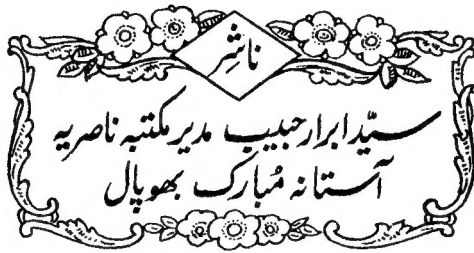 ناشِر
سیّد ابرار حبیب مدیر مکتبہ ناصریہ
آستانہ مُبارک بھوپال